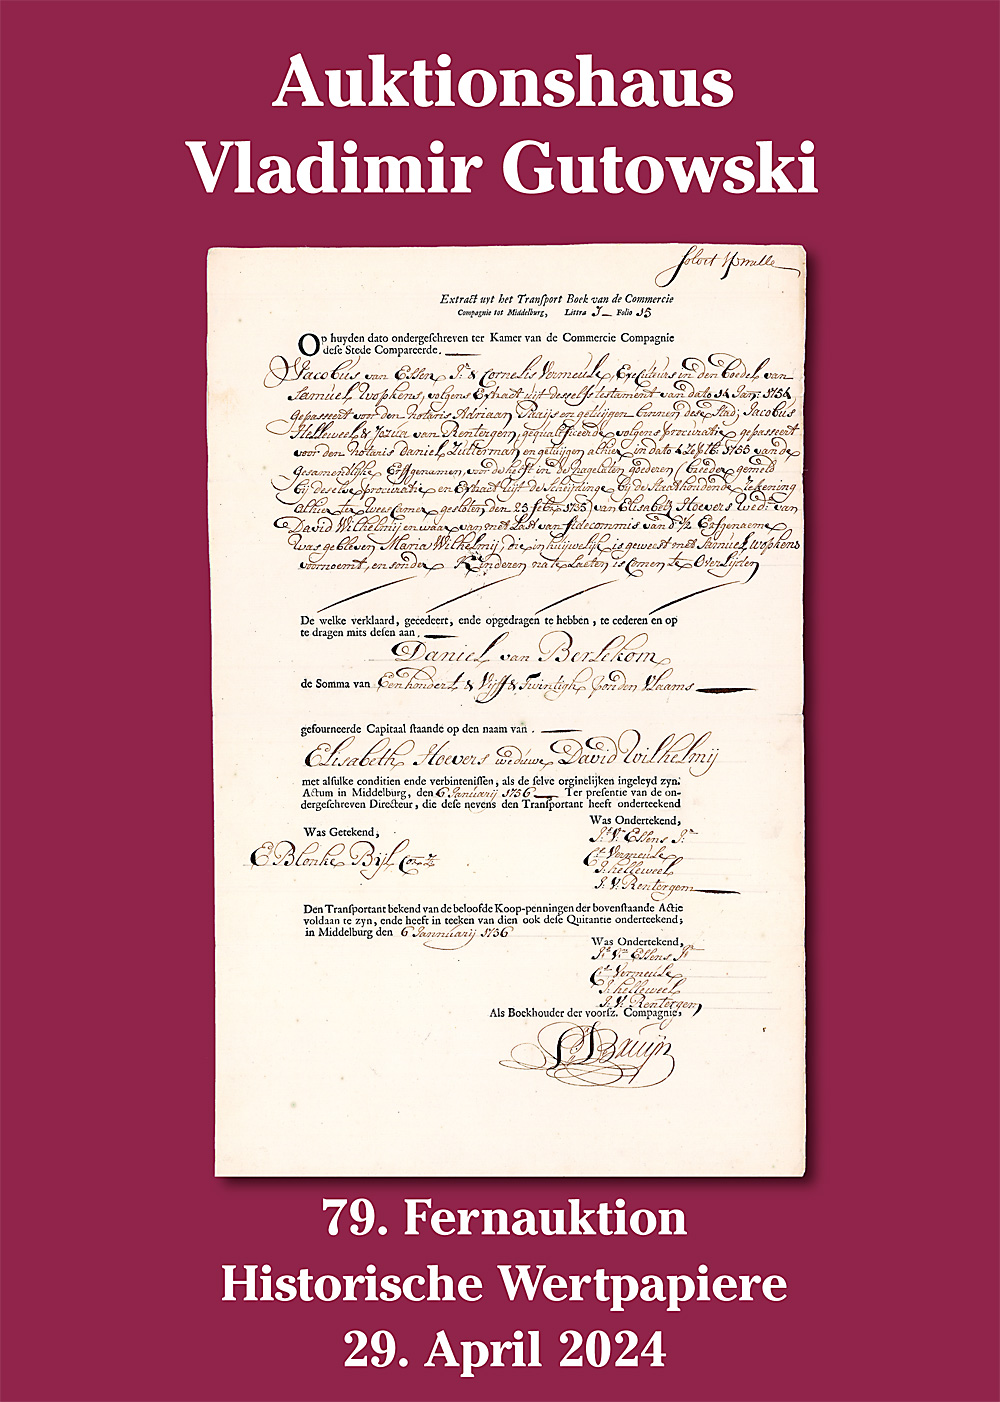 Auktionshaus
Vladimir Gutowski
Extract uyt het Transport Boek van de Commercie
Compagnie tot Middelburg, Littra J Folio 15
Op huyden dato ondergeschreven ter Kamer van de Commercie Compagnie
dese Stede Compareerde.
Jacobus van Essen Jr. & Cornelis Vermeule, Executeurs in den boedel van
Samuel Wopkens, volgens Extract uit desselfs testament van dato 14 Jan: 1754
gepasseert voor den notaris Adriaan Paaijs en getuijgen binnen dese Stad; Jacobus
Helleweel & Jozua van Rentergem, gequalificeerde volgens procuratie gepasseert
voor den notaris Daniel Zutterman en getuijgen alhier in dato 4 Septb. 1755 van de
gesamendlijke Erffgenamen, voor de helft in de nagelaten goederen (breeder gemeld
bij deselve procuratie en Extract uijt de Scheijdinge bij de Staathoudende Tekening
alhier ter Weescamer gesloten den 25 feb: 1735) van Elisabeth Hoevers Wedu: van
David Wilhelmij en waar van met Last van fidecommis van d' 1/2 Erfgenaeme
was gebleven Maria Wilhelmij, die in huijwelijk is geweest met Samuel Wopkens
voornoemt, en sonder Kinderen na te Laeten is comen te Overlijden
De welke verklaard, gecedeert, ende opgedragen te hebben, te cederen en op
te dragen mits desen aan.
Daniel van Berlekom
de Somma van Een hondert & Vijff & Twintigh ponden Vlaams
gefourneerde Capitaal staande op den naam van.
Elisabeth Hoevers weduwe David Wilhelmij
met alsulke conditien ende verbintenissen, als de selve orginelijken ingeleyd zyn.
Actum in Middelburg, den 6 Januarij 1756 Ter presentie van de on-
dergeschreven Directeur, die dese nevens den Transportant heeft onderteekend
Was Ondertekend,
Was Getekend,
Jb. Vn. Essens Jr.
Cs. Vermeule
E Blonke Bijl
J. helleweel
J. V. Rentergem
Den Transportant bekend van de beloofde Koop-penningen der bovenstaande Actie
voldaan te zyn, ende heeft in teeken van dien ook dese Quitantie onderteekend;
in Middelburg den 6 Jannuarij 1756
Was Ondertekend,
Jb. Vn. Essens Jr.
Cs. Vermeule
J. helleweel
J. V. Rentergem
Als Boekhouder der voorsz. Compagnie,
79. Fernauktion
Historische Wertpapiere
29. April 2024